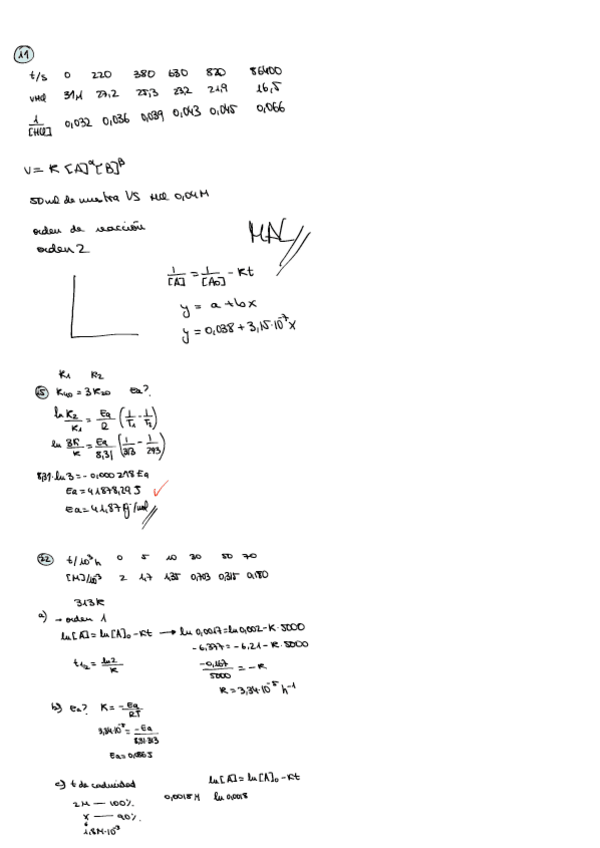 11
t/s 0 220 380 630 820 86400
VHCl 31,1 27,2 25,3 23,2 21,9 16,5
1/[HCl] 0,032 0,036 0,039 0,043 0,045 0,066
V = K [A]^α [B]^β
50 ml de muestra VS HCl 0,04M
orden de reacción
orden 2
MAL
1/[A] = 1/[A0] - Kt
y = a + bx
y = 0,038 + 3,15·10^-7 x
K1 K2
15 K40 = 3K20 Ea?
ln K2/K1 = Ea/R (1/T1 - 1/T2)
ln 3K/K = Ea/8,31 (1/313 - 1/293)
8,31·ln3 = -0,000218 Ea
Ea = 41878,29 J
Ea = 41,87 kJ/mol
22 t/10^3 h 0 5 10 30 50 70
[M]/10^-3 2 1,7 1,35 0,703 0,315 0,180
313K
a) → orden 1
ln[A] = ln[A]0 - Kt → ln 0,0017 = ln 0,002 - K·5000
-6,377 = -6,21 - K·5000
t1/2 = ln2/K
-0,167/5000 = -K
K = 3,34·10^-5 h^-1
b) Ea? K = -Ea/RT
3,34·10^-5 = -Ea/8,31·313
Ea = 0,086 J
c) t de caducidad
ln[A] = ln[A]0 - Kt
2M — 100%
0,0018M ln 0,0018
x — 90%
1,8M·10^-3